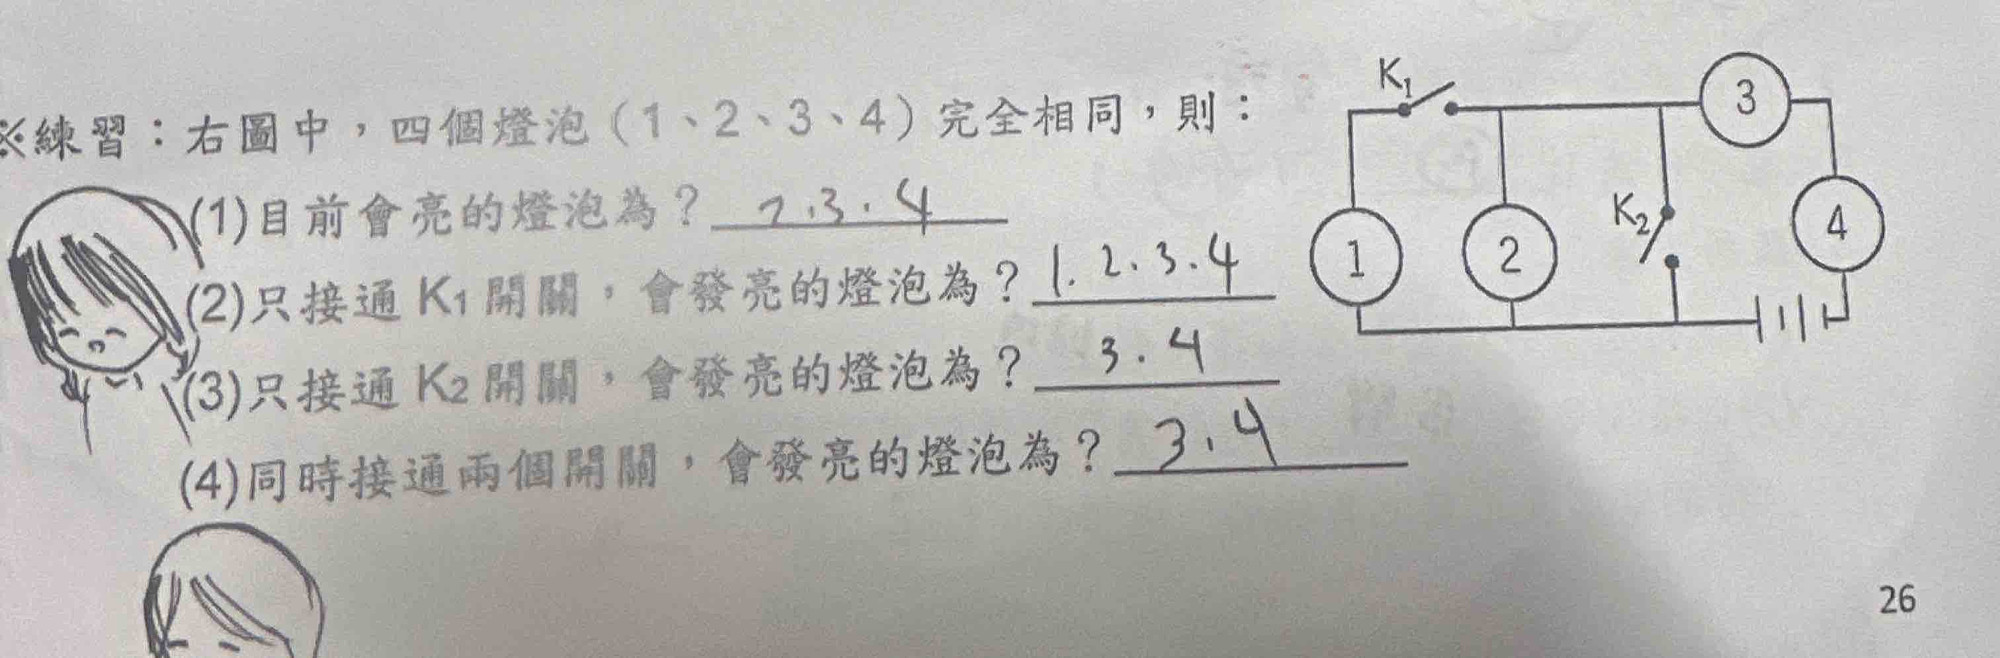 ※練習：右圖中，四個燈泡（1、2、3、4）完全相同，則：
(1)目前會亮的燈泡為？ 2.3.4
(2)只接通 K1 開關，會發亮的燈泡為？ 1.2.3.4
(3)只接通 K2 開關，會發亮的燈泡為？ 3.4
(4)同時接通兩個開關，會發亮的燈泡為？ 3.4
K1
3
K2
4
1
2
26